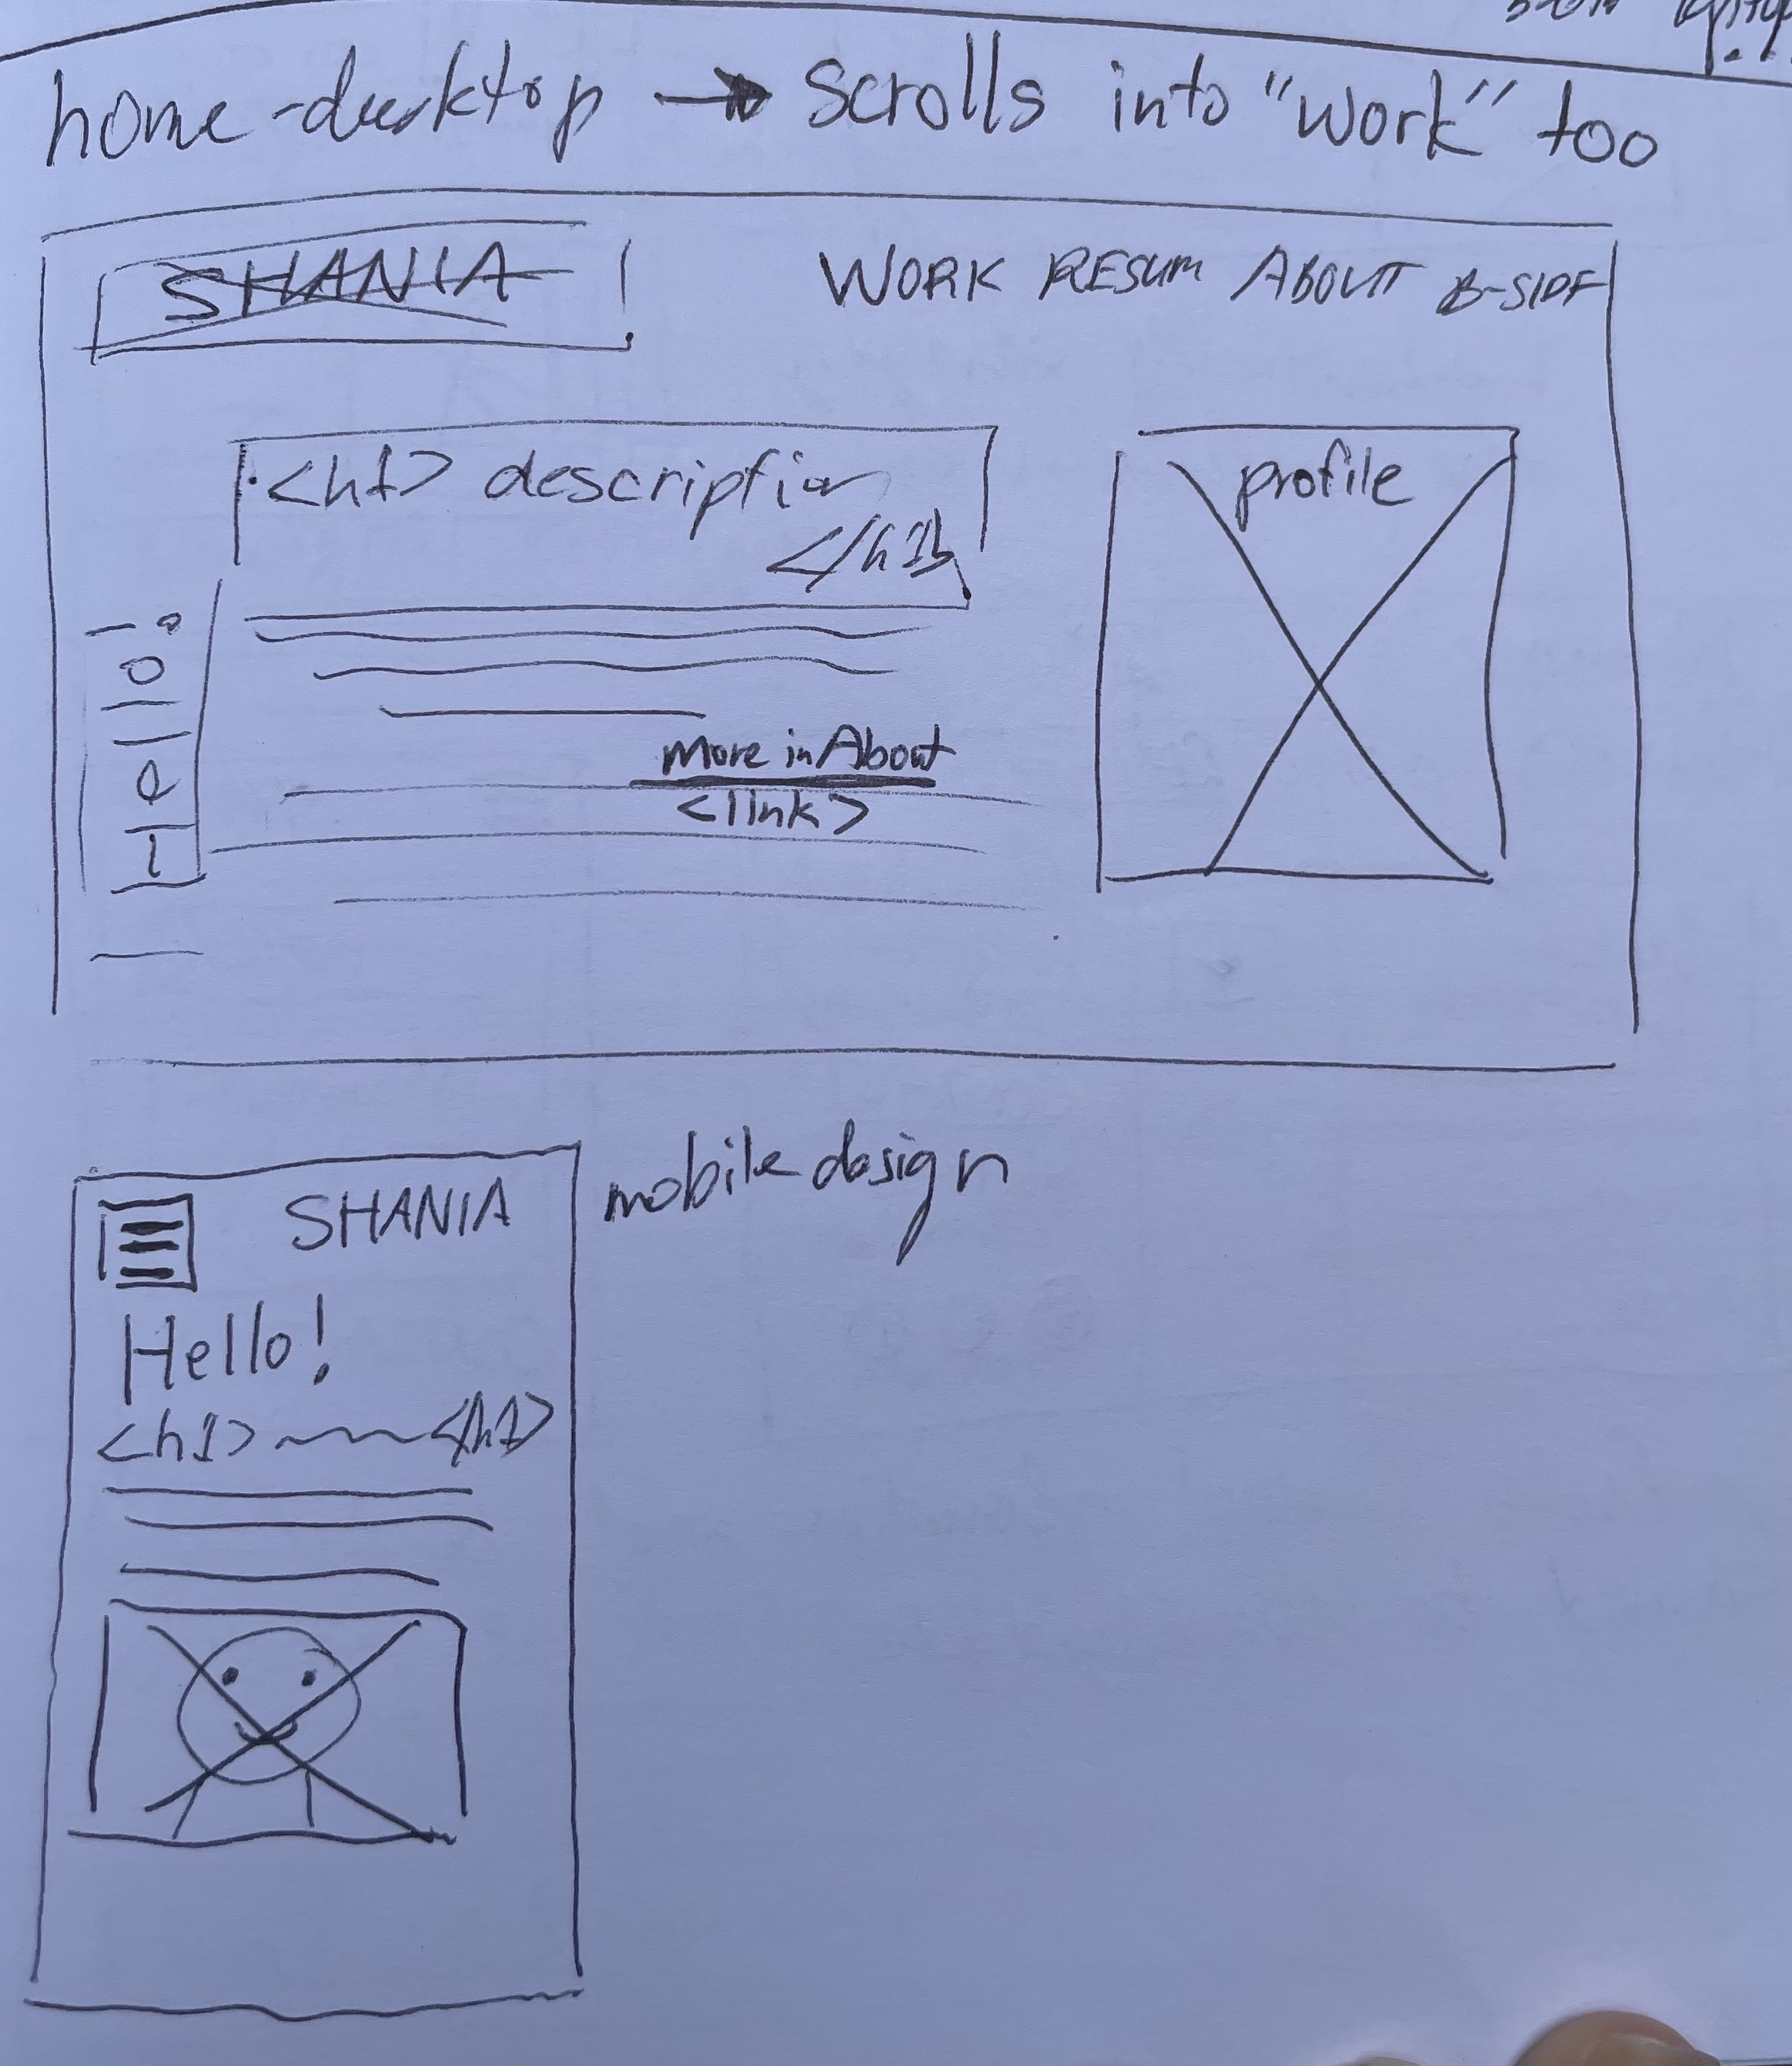 home-desktop → scrolls into "work" too
SHANIA
WORK RESUM ABOUT B-SIDE
<h1> description
</h1>
profile
Hello!
More in About
<link>
mobile design
SHANIA
Hello!
<h1> </h1>